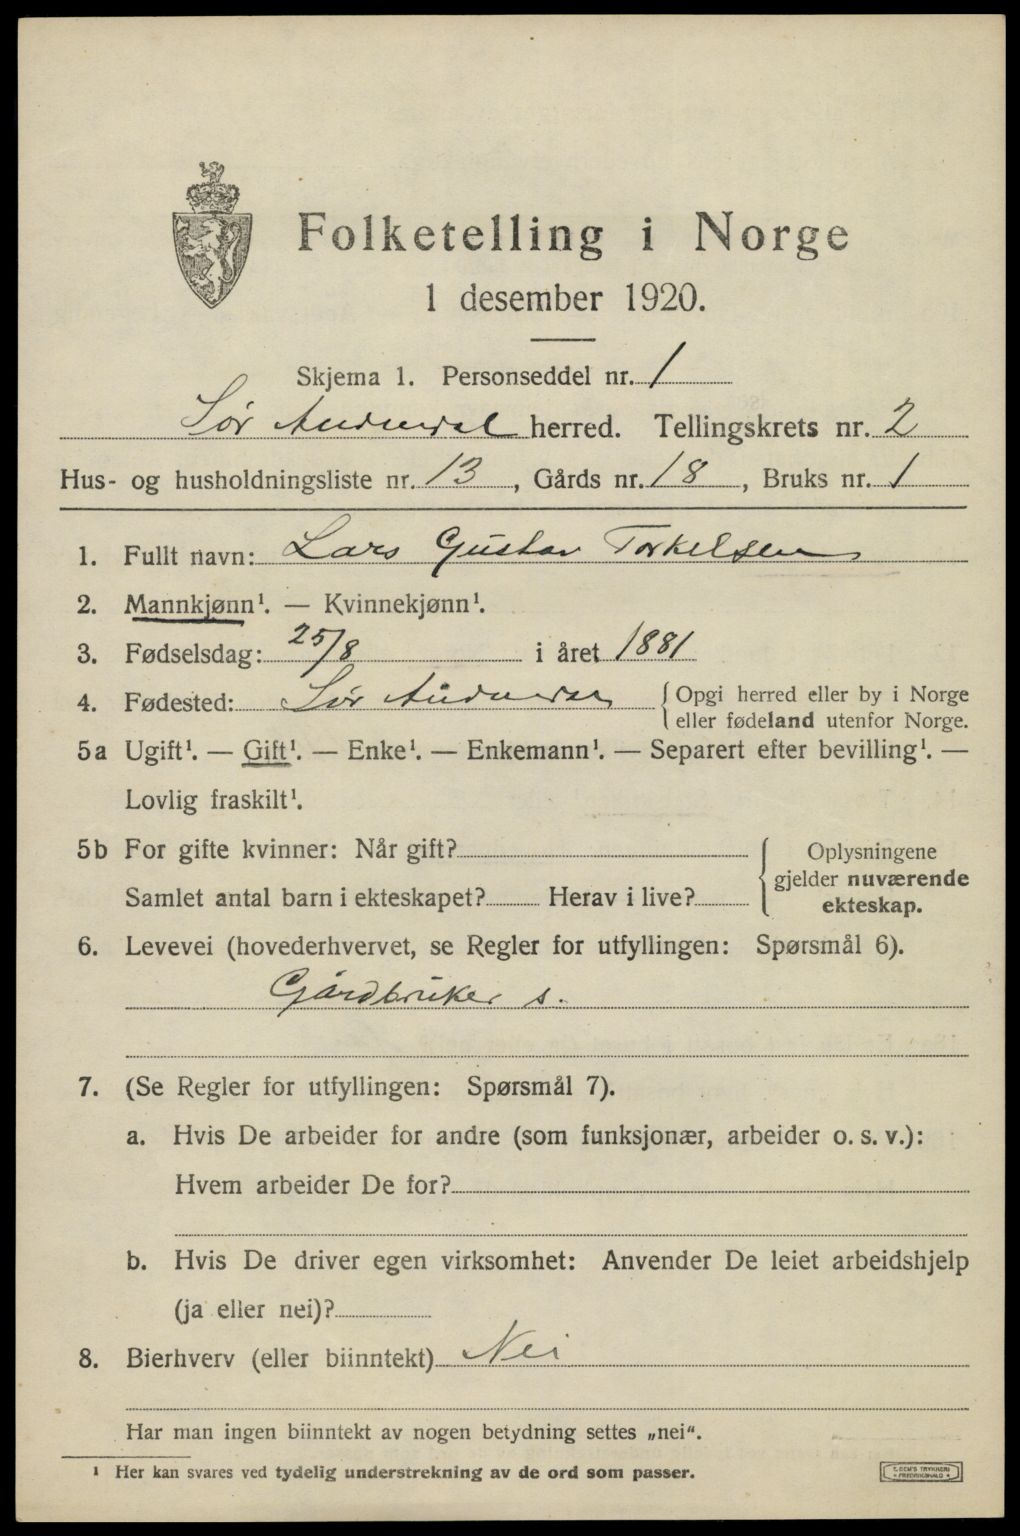 Folketelling i Norge
1 desember 1920.
Skjema 1. Personseddel nr. 1
Sør Audnedal herred. Tellingskrets nr. 2
Hus- og husholdningsliste nr. 13, Gårds nr. 18, Bruks nr. 1
1. Fullt navn: Lars Gustav Torkelsen
2. Mannkjønn¹. — Kvinnekjønn¹.
3. Fødselsdag: 25/8 i året 1881
4. Fødested: Sør Audnedal { Opgi herred eller by i Norge
eller fødeland utenfor Norge.
5a Ugift¹. — Gift¹. — Enke¹. — Enkemann¹. — Separert efter bevilling¹. —
Lovlig fraskilt¹.
5b For gifte kvinner: Når gift?
Samlet antal barn i ekteskapet? Herav i live?
{ Oplysningene
gjelder nuværende
ekteskap.
6. Levevei (hovederhvervet, se Regler for utfyllingen: Spørsmål 6).
Gårdbruker s.
7. (Se Regler for utfyllingen: Spørsmål 7).
a. Hvis De arbeider for andre (som funksjonær, arbeider o. s. v.):
Hvem arbeider De for?
b. Hvis De driver egen virksomhet: Anvender De leiet arbeidshjelp
(ja eller nei)?
8. Bierhverv (eller biinntekt) Nei
Har man ingen biinntekt av nogen betydning settes „nei“.
¹ Her kan svares ved tydelig understrekning av de ord som passer.